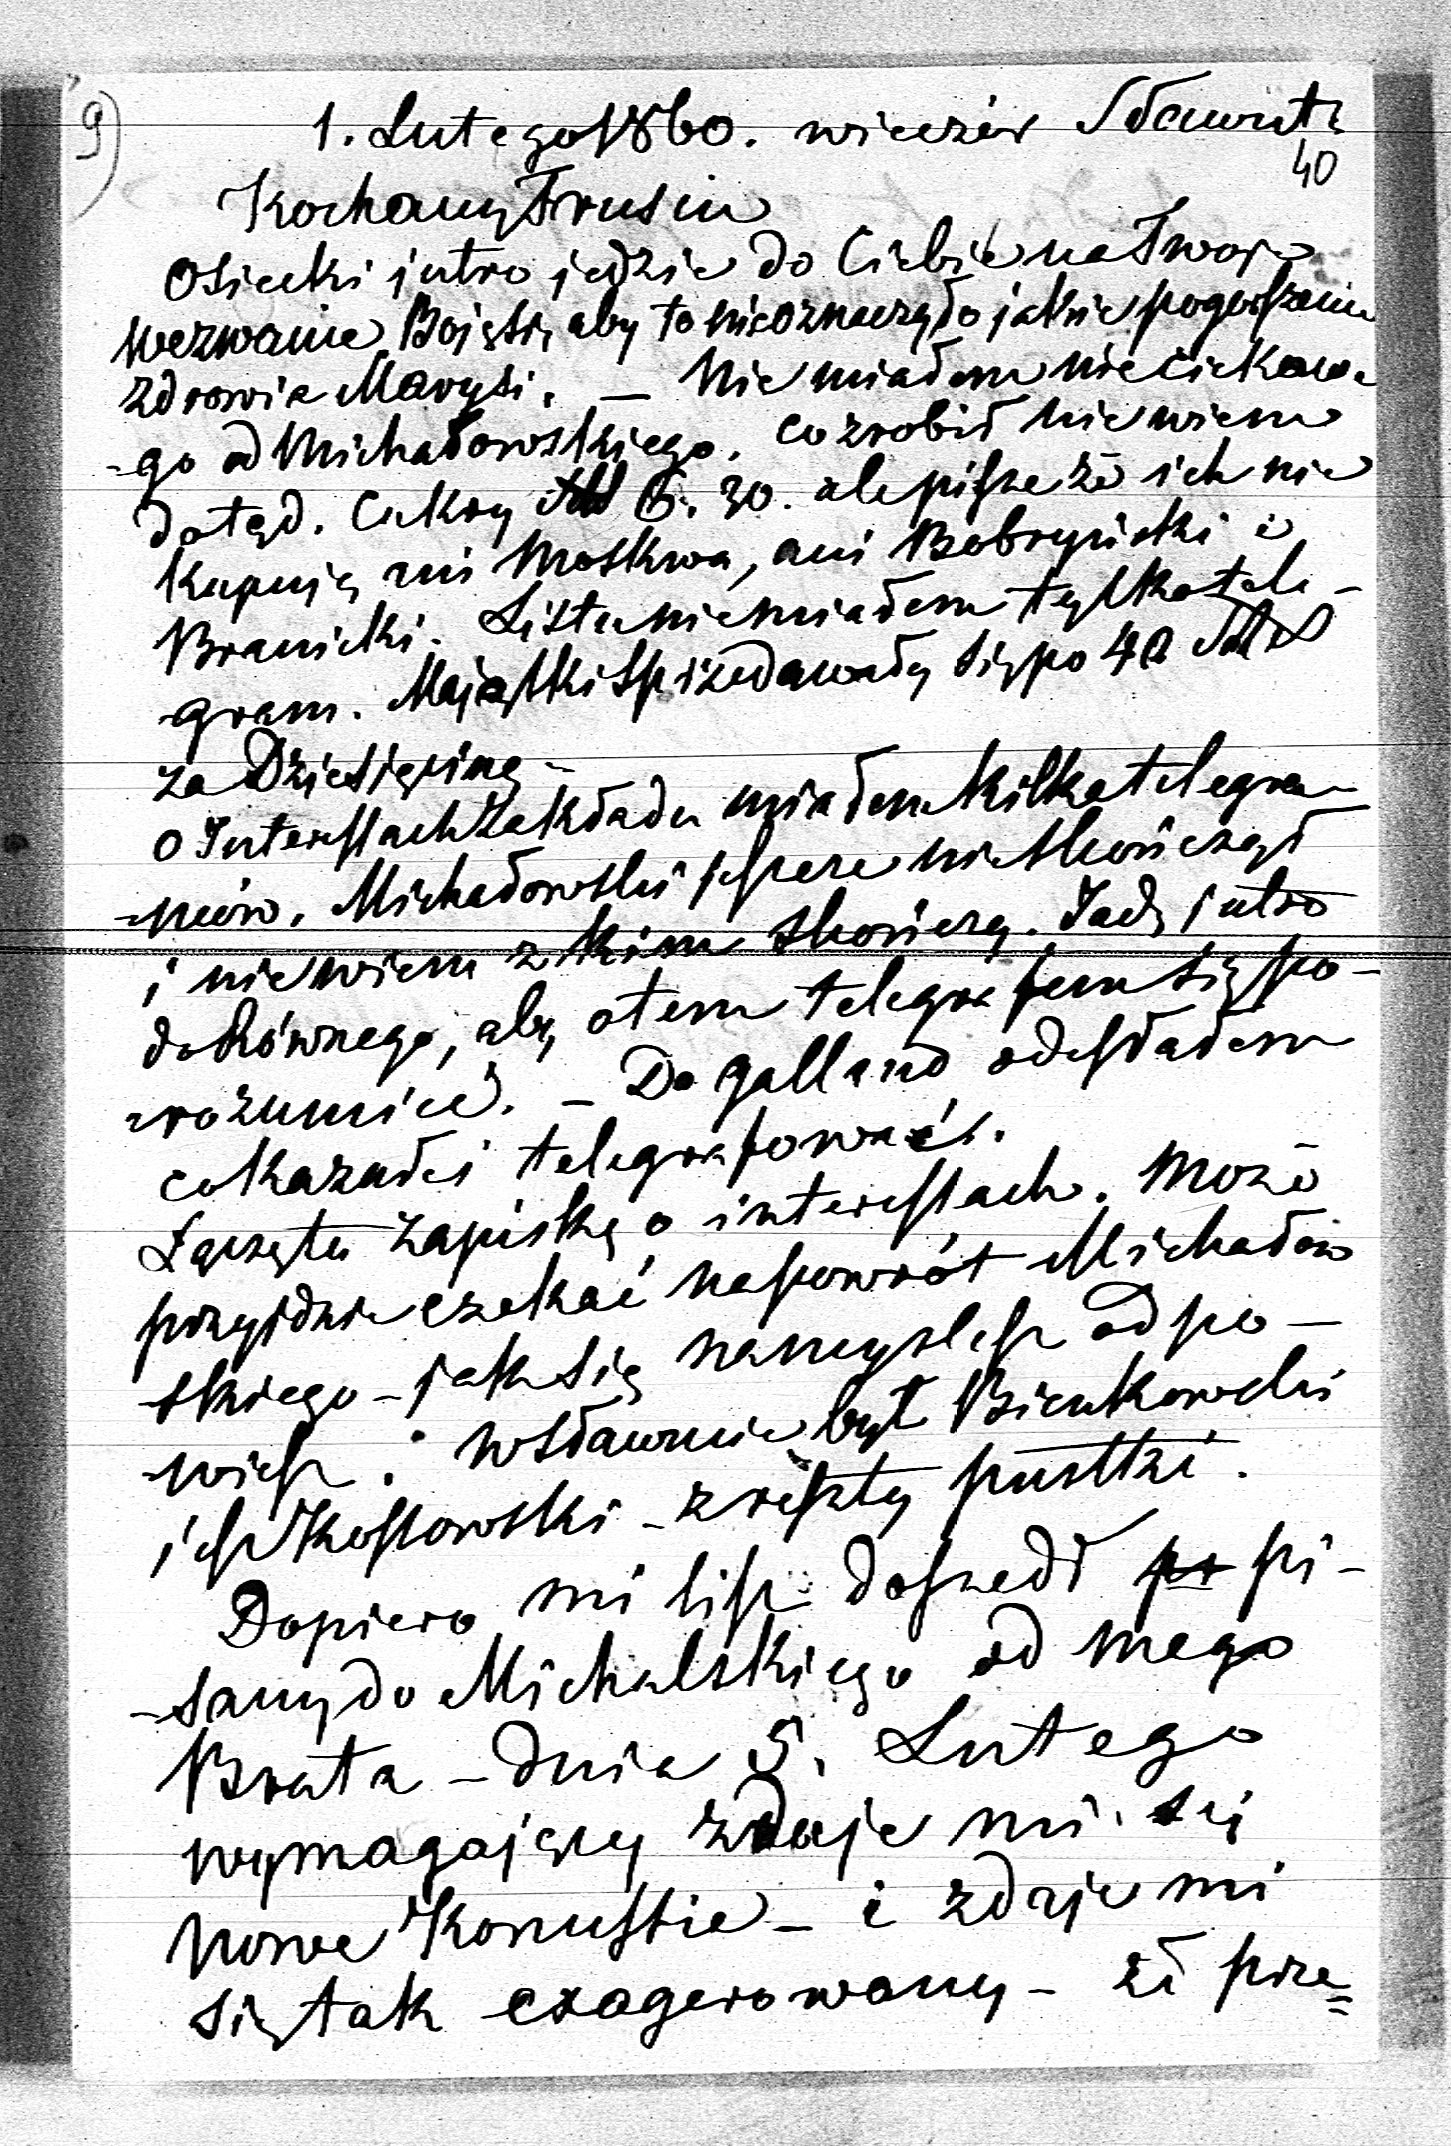 9)
1. Lutego 1860. wieczór Sławuta
40
Kochany Trusiu
Osiecki jutro jedzie do Ciebie na Twoje
wezwanie Boję się aby to nieoznaczyło jakie pogorszenie
zdrowia Marysi. — Nie miałem nic ciekawe-
-go od Michałowskiego. Co zrobił nie wiem
dotąd. Cukry 6. 30. ale pisze że ich nie
kupują ani Moskwa, ani Bobryński i
Branicki. Listu nie miałem tylko tele-
-gram. Majątki sprzedawały się po 40
za Dziesięcinę -
O Interessach Zakładu miałem kilka telegra-
-mów. Michałowski jeszcze nie skończył
i nie wiem z kim skończy. Jadę jutro
do Równego, aby o tem telegrafem się po-
-rozumieć. - Do Galland odesłałem
co kazałeś telegrafować.
Łączę tu zapiskę o interessach. Może
przyjdzie czekać na powrót Michałow
skiego - jak się namyślisz odpo-
-wiesz. W Sławucie był Bienkowski
i Kossowski - zreszty pustki.
Dopiero mi list doszedł pr pi-
-sany do Michalskiego od mego
Brata - dnia 5. Lutego
wymagający zdaje mi się
nowe - i zdaje mi
się tak exagerowany - że prze=